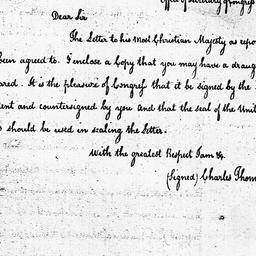 Office of Secretary of Congress
Dear Sir
The Letter to his Most Christian Majesty as repo
been agreed to. I enclose a Copy that you may have a draug
ared. It is the pleasure of Congress that it be signed by the
ent and countersigned by you And that the seal of the Unit
s should be used in sealing the Letter.
With the greatest Respect I am &c
(Signed) Charles Thom